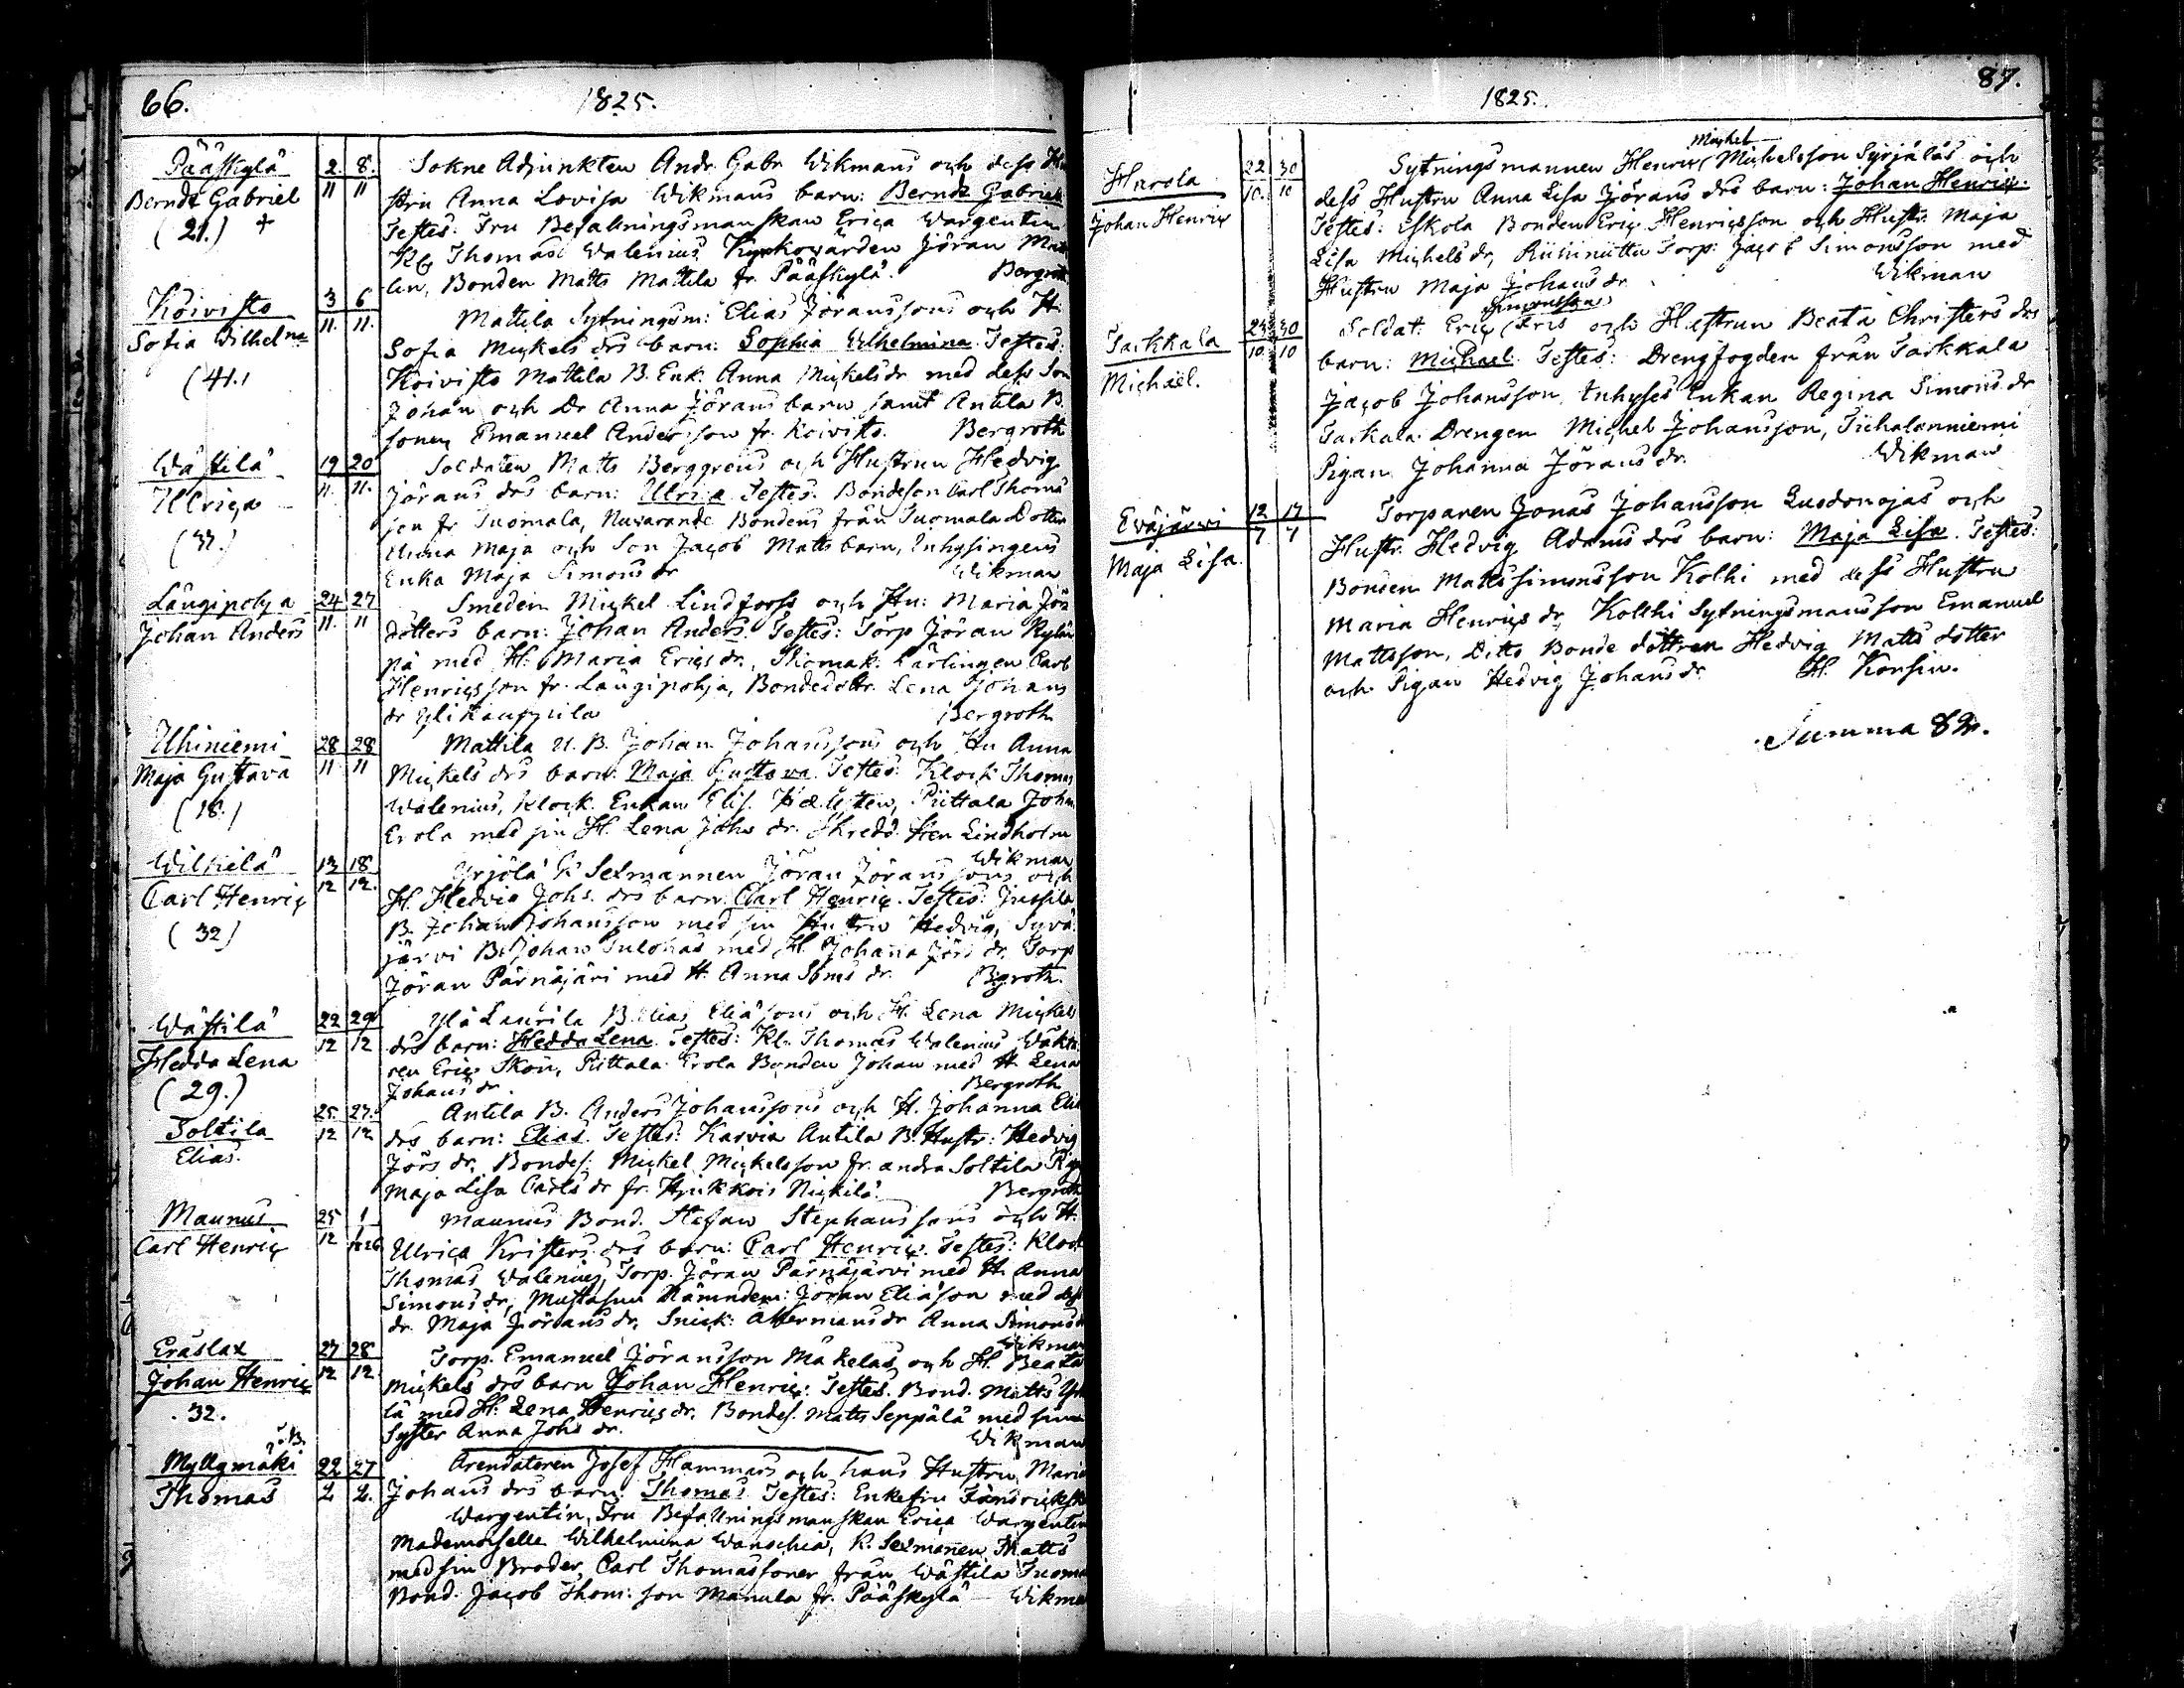 66.
1825.
Pääskylä 2. 8. Sokne Adjunkten Andr. Gabr Wikmans och dess Hu
Berndt Gabriel 11 11 stru Anna Lovisa Wikmans barn: Berndt Gabriel
(21.) + Testes: Fru Befalningsmanskan Erica Wargentin
Thomas Walenius, Kyrkovärden Jöran Mat
lin, Bonden Matts Mattila fr. Pääskylä. Bergroth
Koivisto 3 6 Mattila Sytningsm: Elias Jöranssons och H.
Sofia Wilhelma 11. 11. Sofia Mickels drs barn: Sophia Wilhelmina Testes:
(41.) Koivisto Mattila B. Enk. Anna Mickelsdr med dess Son
Johan och Dr Anna Jörans barn samt Antila B.
sonen Emanuel Andersson fr. Koivisto. Bergroth
Wästilä 19 20 Soldaten Matts Berggrens och Hustrun Hedvig
Ulrica 11. 11. Jörans drs barn: Ulrica Testes. Bondeson Carl Thoms
(37.) son fr Tuomala, Nuvarande Bondens från Tuomala Dotter
Anna Maja och Son Jacob Matts barn, Inhysingens
Enka Maja Simons dr Wikman
Längipohja 24 27 Smeden Mickel Lindforss och Hu: Maria Jör
Johan Anders 11. 11 dotters barn: Johan Anders. Testes: Torp Jöran Kylän
pä med H. Maria Erics dr., Thomak. Lärlingen Carl
Henricsson fr. Längipohja, Bondedottr. Lena Johans
dr Ylikauppila Bergroth
Uhiniemi 28 28 Mattila U. B. Johan Johanssons och Hu Anna
Maja Gustava 11 11 Mickels drs barn: Maja Gustava Testes: Klock Thomas
(18.) Walenius, Klock. Enkan Elis. Piittala Johan
Erola med sin H. Lena Johs dr. Skredd. Lindholm
Wikman
Wilkilä 13 18. Yrjölä K Sexmannen Jöran Jöranssons och
Carl Henric 12 12. H. Hedvig Johs. drs barn: Carl Henric. Testes: Jussila
(32) B. Johan Johansson med sin Hustru Hedvig, Syvä
järvi B. Johan Tulohas med H. Johanna Jörs dr. Torp
Jöran Pärnäjäri med H. Anna Sims dr. Bgroth.
Wästilä 22 29 Ylä Laurila B. Elias Eliäsons och H. Lena Mickels
Hedda Lena 12 12 drs barn: Hedda Lena. Testes: Kl. Thomas Walenius Wäkta
(29.) ren Eric Skön, Piittala Erola Bonden Johan med H. Lena
Johans dr. Bergroth
Soltila 25. 27. Antila B. Anders Johanssons och H. Johanna Elia
Elias. 12 12 drs barn: Elias. Testes: Karvia Antila B. Hustr: Hedvig
Jörs dr. Bondes: Mickel Mickelsson fr. andra Soltila Pig
Maja Lisa Carls dr fr. Hiukkois Nickilä. Bergroth
Maunus 25 1 Maunus Bond. Stefan Stephanssons och H.
Carl Henric 12 1826 Ulrica Kristers drs barn: Carl Henric. Testes: Klock
Thomas Walenius, Torp. Jöran Pärnäjärvi med H. Anna
Simons dr, Mustasuu Nämndem: Jöran Eliäson med dess
dr. Maja Jörans dr. Snick: Åkermans dr Anna Simons dr
Wikman
Eräslax 27 28 Torp. Emanuel Jöransson Mäkeläs och H. Beata
Johan Henric 12 12 Mickels drs barn Johan Henric. Testes. Bond. Matts Yrö
32. lä med H. Lena Henrics dr. Bondes. Matts Seppälä med sin
Syster Anna Johs dr. Wikman
Myllymäki 22 27 Arendatoren Josef Hammars och hans Hustru Maria
Thomas 2 2. Johans drs barn: Thomas Testes: Enkefru Fändricksk
Wargentin, Fru Befallningsmanskan Erica Wargentin
Mademoiselle Wilhelmina Wanochia, K. Sexmannen Matts
med sin Broder, Carl Thomassoner från Wästilä Tuoma
Bond. Jacob Thom: son Manula fr. Pääskylä Wikman
87.
1825.
Michel
Harola 22 30 Sytningsmannen Henric Michelsson Syrjäläs och
Johan Henric 10. 10 dess Hustru Anna Lisa Jörans drs barn: Johan Henric.
Testes: Eskola Bonden Eric Henricsson och Hustr. Maja
Lisa Michels dr, Riihinittu Torp: Jacob Simonsson med
Hustru Maja Johans dr. Wikman
Simonssons
Sarkkala 23 30 Soldat: Eric Fris och Hustrun Beata Christers drs
Michael. 10 10 barn: Michael. Testes: Drengfogden från Sarkkala
Jacob Johansson, Inhyses Enkan Regina Simons dr
Sarkala. Drengen Michel Johansson, Tiihalanniemi
Pigan Johanna Jörans dr. Wikman
Eväjärvi 12 17 Torparen Jonas Johansson Lusdonojas och
Maja Lisa. 7 7 Hustr. Hedvig Adams drs barn: Maja Lisa. Testes:
Bonden Matts Simonsson Kolhi med dess Hustru
Maria Henrics dr, Kollhi Sytningsmansson Emanuel
Mattsson, Ditto Bonde dottren Hedvig Matts dotter
och Pigan Hedvig Johans dr. H. Konsin.
Summa 82.